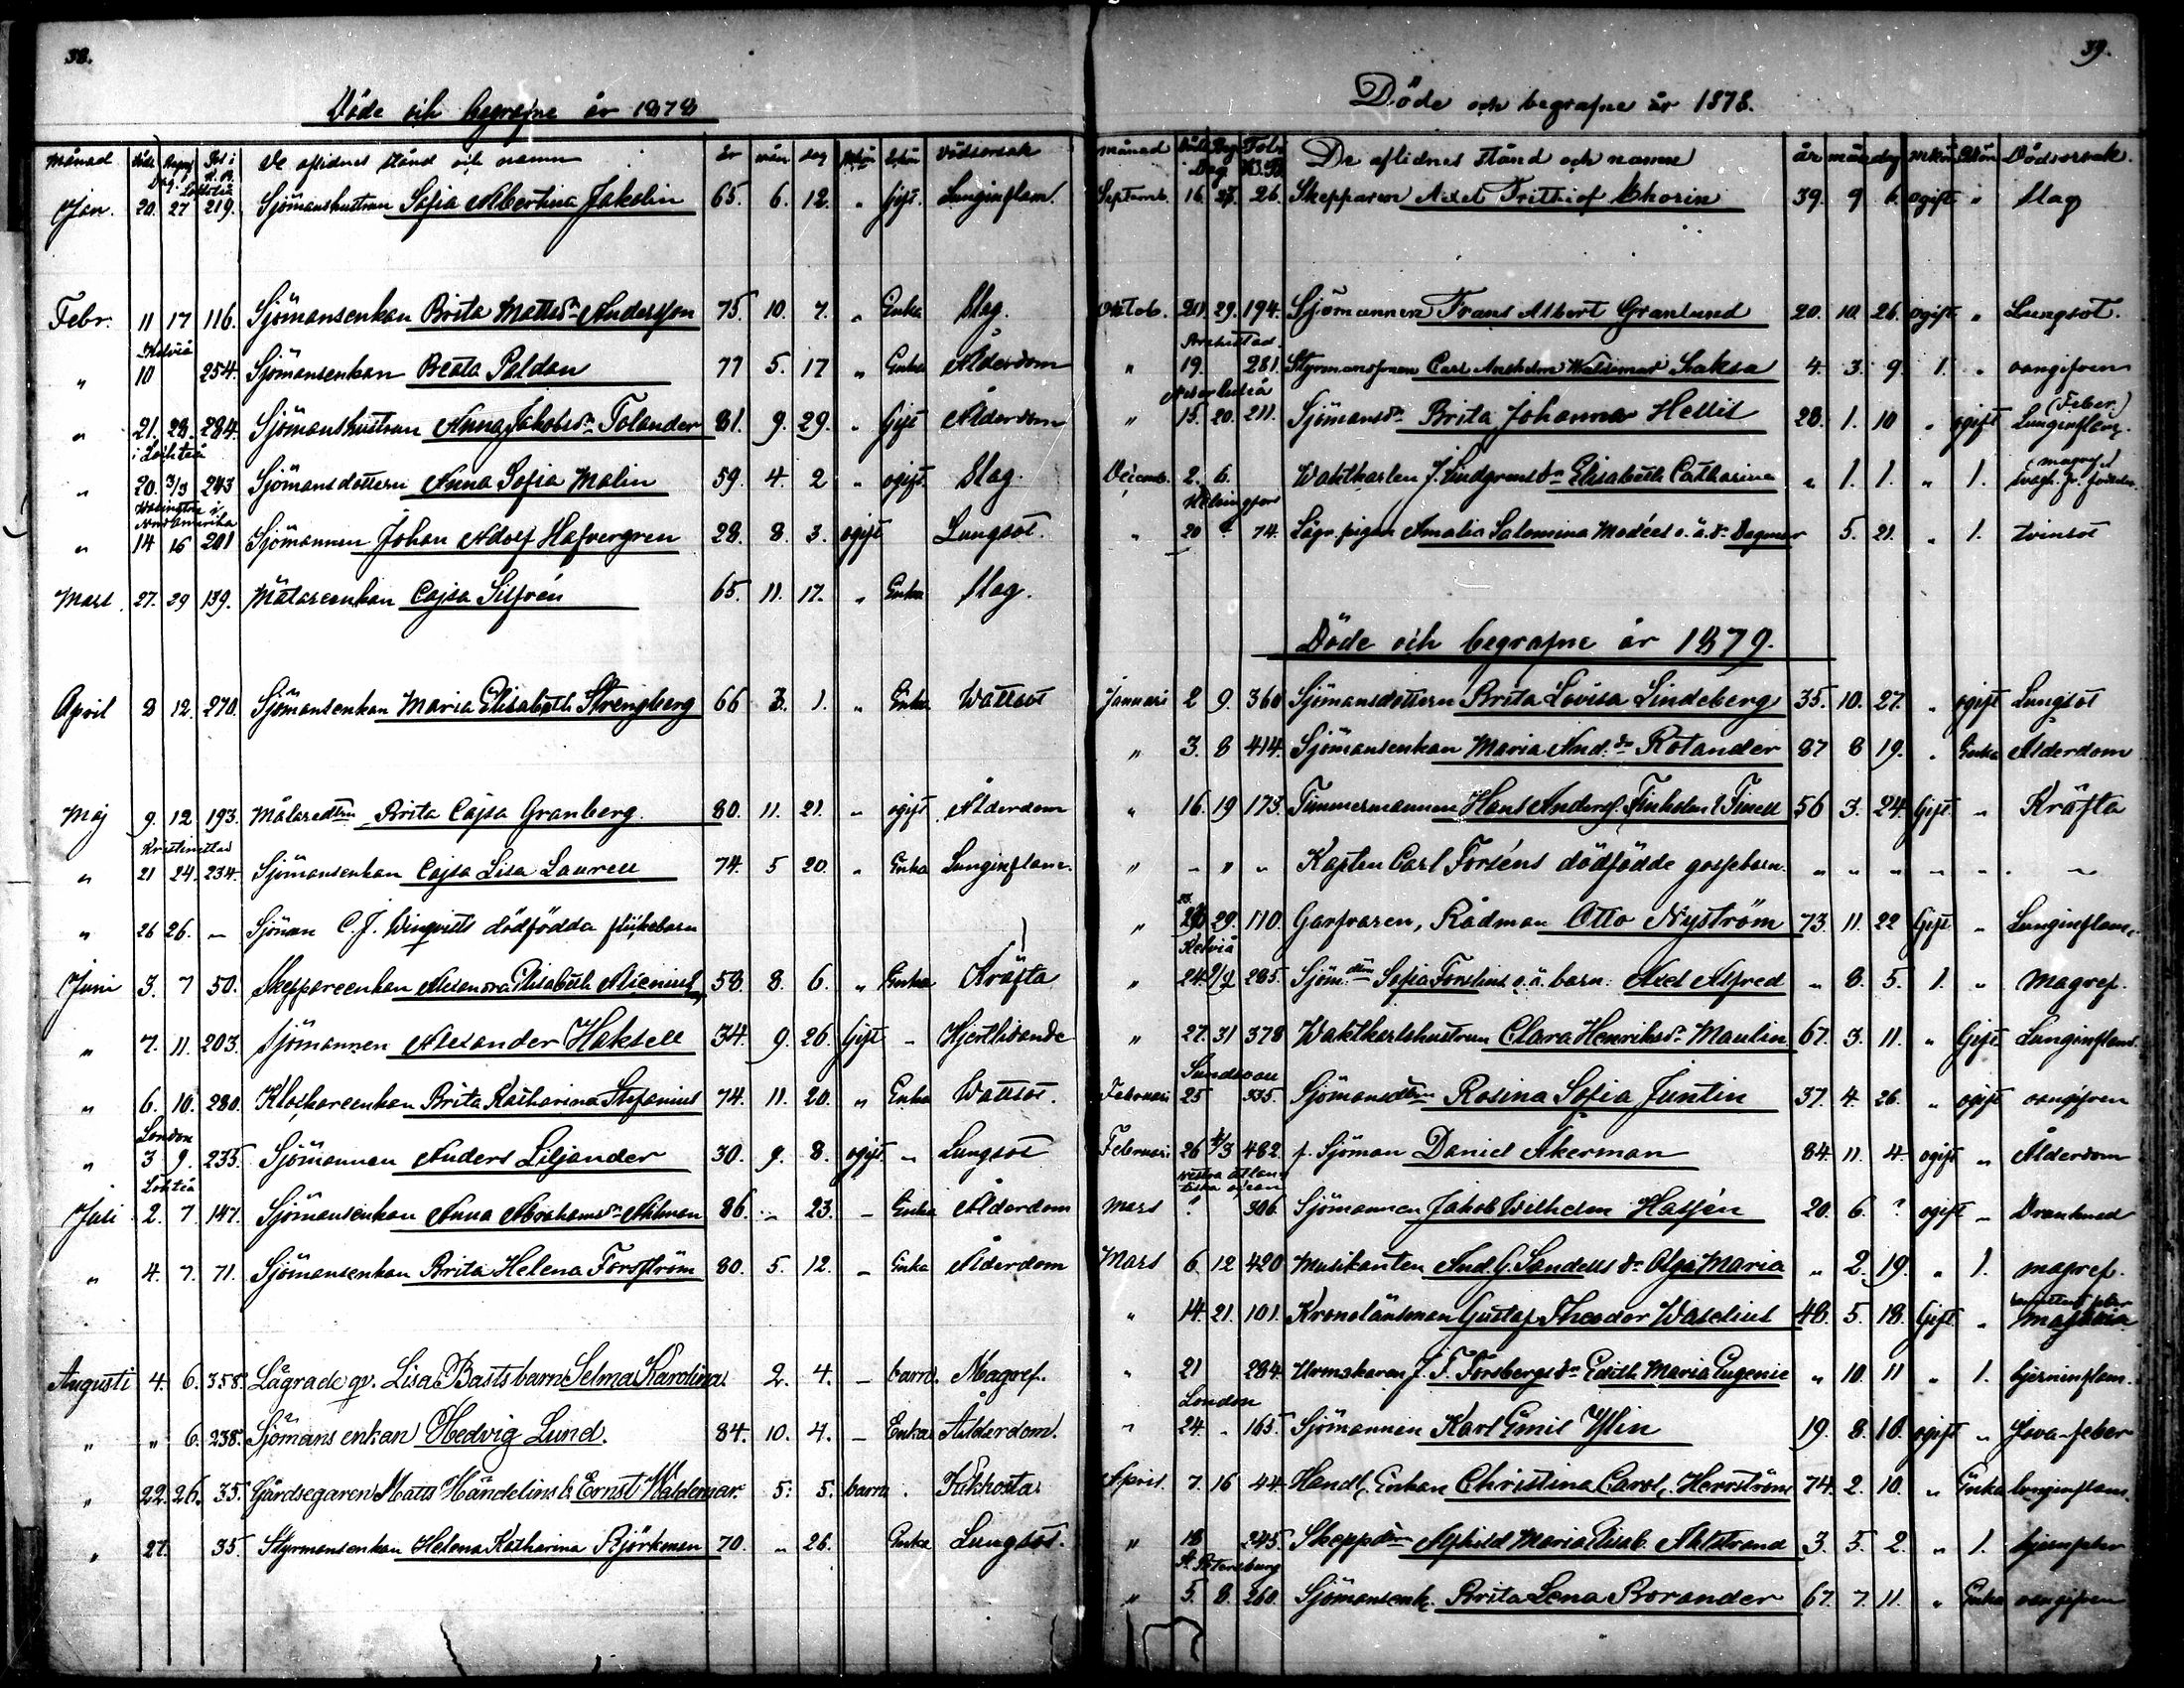 38.
Döde och begrafne år 1878
Månad Död Begraf Fol. i De aflidnes stånd och namn år mån dag Mkön Qvkön Dödsorsak
Dag. K.B.
Lohteå
Jan. 20. 27 219. Sjömanshustrun Sofia Albertina Jakolin 65. 6. 12. " gift. Lunginflam.
Febr. 11 17 116. Sjömansenkan Brita Mattsdr Andersson 75. 10. 7. " Enka Slag.
Kelviå
" 10 254. Sjömansenkan Beata Paldan 77 5. 17 " Enka Ålderdom
" 21. 28. 284. Sjömanshustrun Anna Jakobsdr Tolander 81. 9. 29. " Gift Ålderdom
i Lochteå
" 20. 3/3 243 Sjömansdottern Anna Sofia Malin 59. 4. 2 " ogift Slag.
Washington i
Nordamerika
" 14 16 201 Sjömannen Johan Adolf Hafvergren 28. 8. 3. ogift Lungsot.
Mars. 27. 29 139. Målareenkan Cajsa Silfvén 65. 11. 17. " Enka Slag.
April 8 12. 270. Sjömansenkan Maria Elisabeth Strengberg 66 3. 1. " Enka Wattsot
Maj 9. 12 193. Målaredttrn Brita Cajsa Granberg. 80. 11. 21. " ogift Ålderdom
Kristinestad
" 21 24. 234. Sjömansenkan Cajsa Lisa Laurell 74. 5 20. " Enka Lunginflam.
" 26 26. – Sjöman C. J. Winqvists dödfödda flickebarn
Juni 3. 7 50. Skeppareenkan Alexandra Elisabeth Alcenius 58. 8. 6. " Enka Kräfta
" 7. 11. 203. Sjömannen Alexander Haksell 34. 9. 26. Gift – Hjertlidande
" 6. 10. 280. Klockareenkan Brita Katharina Stefanius 74. 11. 20. " Enka Wattsot.
London
" 3 9. 235. Sjömannen Anders Liljander 30. 9. 8. ogift " Lungsot
Lohteå
Juli 2. 7 147. Sjömansenkan Anna Abrahamsdr Ahlman 86. – 23. – Enka Ålderdom
" 4. 7. 71. Sjömansenkan Brita Helena Forsström 80. 5. 12. – Enka Ålderdom
Augusti 4. 6. 358. Lägrade qv. Lisa Basts barn Selma Karolina. 2. 4. – barn. Magref.
" " 6. 238. Sjömans enkan Hedvig Lund. 84. 10. 4. – Enka Ålderdom.
" 22. 26. 35. Gårdsegaren Matts Händelins b. Ernst Waldemar. 5. 5. barn . Kikhosta
" 27. 35. Styrmansenkan Helena Katharina Björkman 70. " 26. Enka Lungsot.
39.
Döde och begrafne år 1878.
Månad Död Beg. Fol. De aflidnes stånd och namn år mån dag Mkön Qkön Dödsorsak.
Dag K.B.
Septemb. 16. 23. 26. Skepparen Axel Frithiof Chorin 39. 9 6. ogift " Slag
Octob. 21. 29. 194. Sjömannen Frans Albert Granlund 20. 10. 26. ogift " Lungsot.
" 19. 281. Styrmanssonen Carl Anshelm Waldemar Saksa 4. 3. 9. 1. " oangifven
" 15. 20. 211. Sjömansdr Brita Johanna Hellis 28. 1. 10 " ogift (Feber) Lunginflam.
Decemb. 2. 6. Waktkarlen J. Lindgrens dr Elisabeth Catharina " 1. 1. " 1.
Helsingfors
" 20 74. Lägr. pigan Amalia Salomina Modéns o. ä. dr Dagmar 5. 21. " 1. tvinsot
Döde och begrafne år 1879.
Januari 2 9. 360 Sjömansdottern Brita Lovisa Lindeberg 35. 10. 27. " ogift Lungsot
" 3. 8 414. Sjömansenkan Maria And.dr Rolander 87 8 19. " Enka Ålderdom
" 16. 19 173. Timmermannen Hans Andersf. Finholm l. Finell 56 3. 24. Gift. " Kräfta
" – " " Kapten Carl Forséns dödfödde gossebarn. " " " " " "
" 29. 110. Garfvaren, Rådman Otto Nyström 73. 11. 22 Gift " Lunginflam.
Kelviå
" 24. 2/2 285. Sjöm.dttrn Sofia Forslins o. ä. barn Axel Alfred " 8. 5. 1. " Magref.
" 27. 31 378 Waktkarlshustrun Clara Henriksdr Maulin 67. 3. 11. " Gift Lunginflam.
Sundsvall
Februari 25 335. Sjömansdttrn Rosina Sofia Juntin 37. 4. 26. " ogift oangifven
Februari. 26 4/3 462. f. Sjöman Daniel Åkerman 84. 11. 4. ogift " Ålderdom
vestra atlan
tiska ocean
Mars ? 306. Sjömannen Jakob Wilhelm Hassén 20. 6. ? ogift – Drunknad
Mars 6 12 420 Musikanten And. G. Sandells dr Olga Maria " 2. 19. " 1. magref.
" 14. 21. 101. Kronolänsman Gustaf Theodor Waselius 48. 5. 18. Gift "
" 21 284. Urmakaren J. F. Forsbergs dr Edith Maria Eugenie " 10. 11 " 1. hjerninflam.
London
" 24. " 165. Sjömannen Karl Emil Yslin 19. 8. 10. ogift " Java-feber
April. 7. 16 44 Handl. Enkan Christina Carol. Herrström 74. 2. 10. " Enka lunginflam.
" 18 245. Skeppsdttrn Alfhild Maria Elisab. Ahlstrand 3. 5. 2. " 1. hjernfeber
St Petersburg
" 5. 8. 260. Sjömansenk. Brita Lena Borander 67. 7. 11. " Enka oangifven